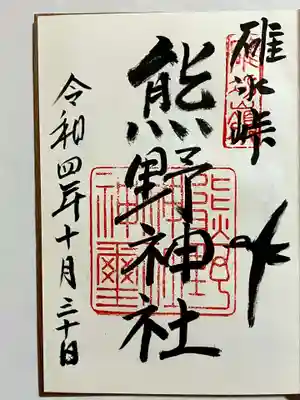 碓氷峠
熊野神社
令和四年十月三十日